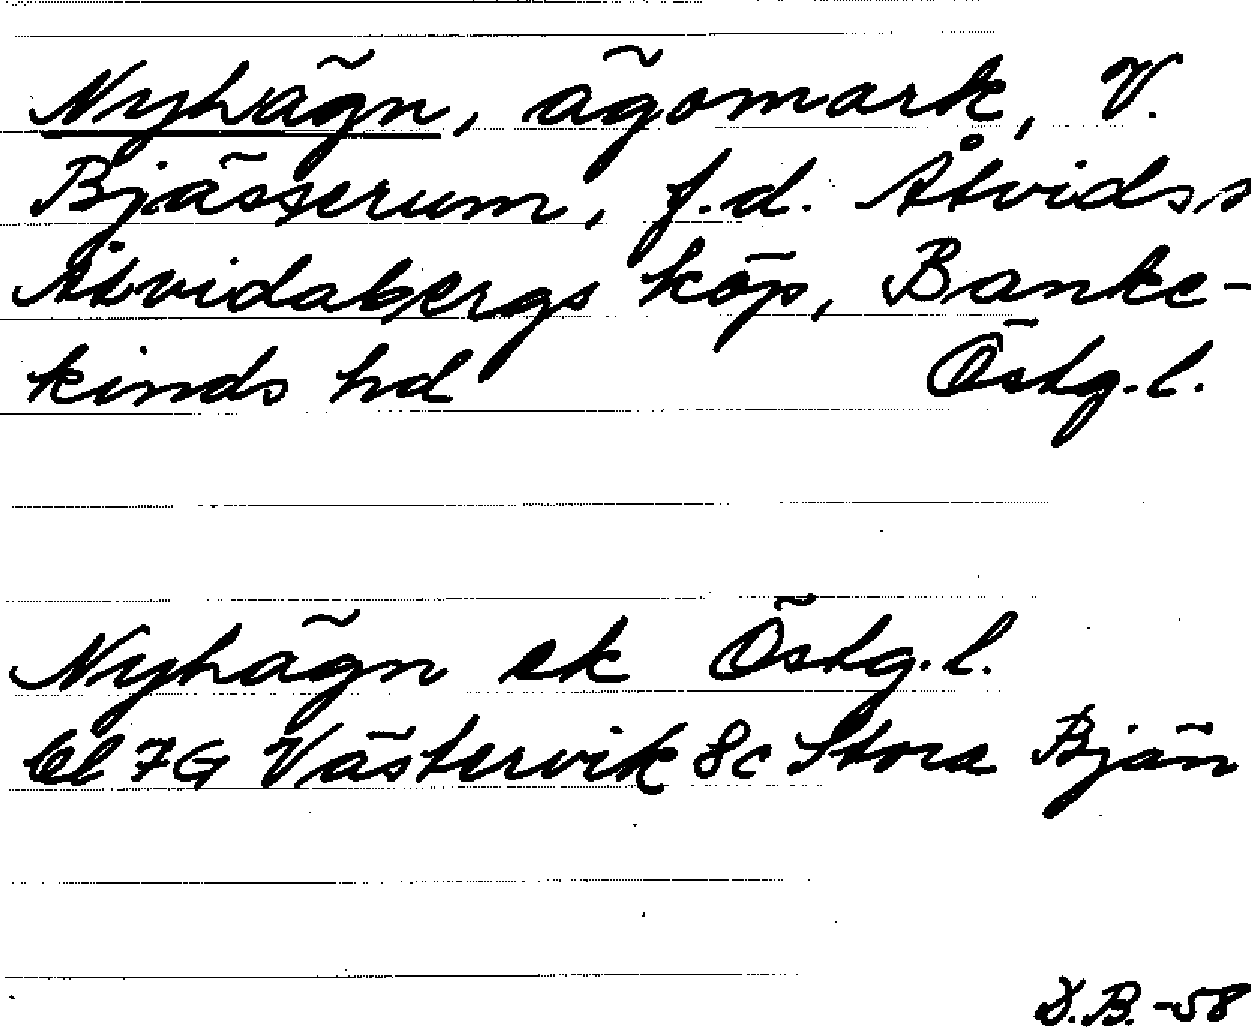 Nyhägn, ägomark, V.
Bjässerum, f.d. Åtvids s
Åtvidabergs köp, Banke-
kinds hd Östg.l.
Nyhägn ek Östg.l.
7G Västervik 8c Stora Bjän
B.-58